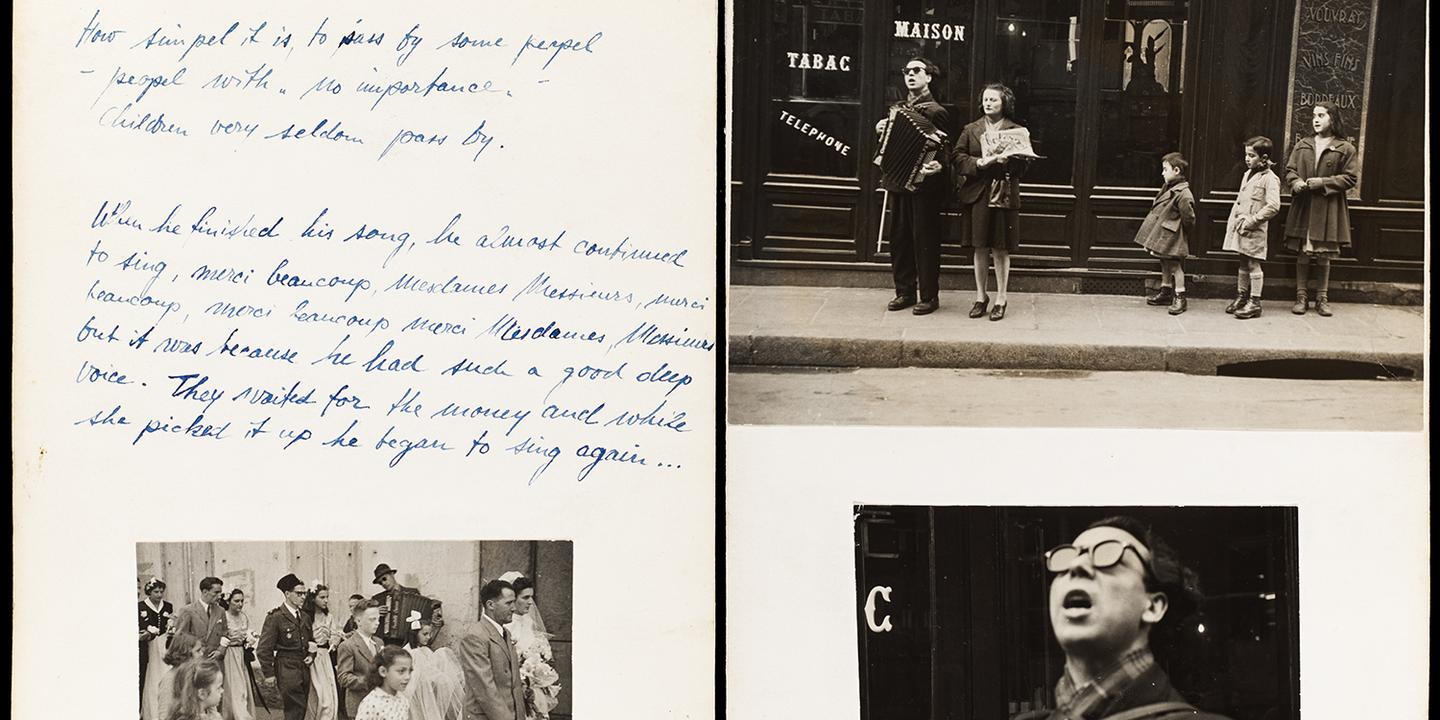 How simpel it is, to pass by some peopel
- peopel with „ no importance „ -
Children very seldom pass by.
When he finished his song, he almost continued
to sing, merci beaucoup, Mesdames Messieurs, merci
beaucoup, merci beaucoup merci Mesdames, Messieurs
but it was because he had such a good deep
voice. They waited for the money and while
she picked it up he began to sing again...
MAISON
TABAC
TELEPHONE
VOUVRAY
VINS FINS
BORDEAUX
C